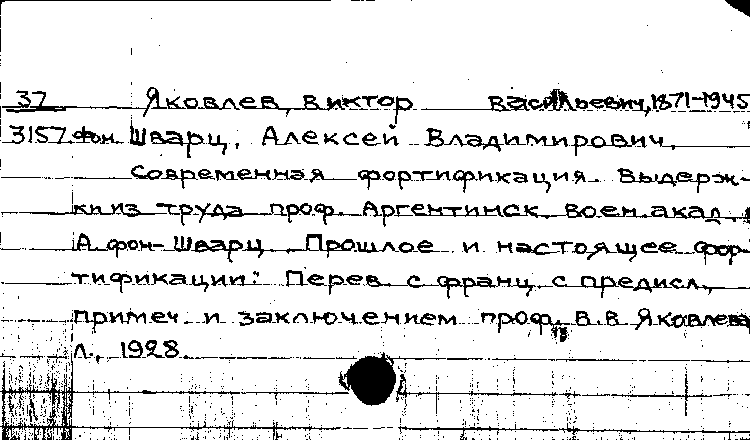 37 Яковлев, Виктор Васильевич, 1871-1945
3157. фон Шварц, Алексей Владимирович.
Современная фортификация. Выдерж-
ки из труда проф. Аргентинск. воен. акад.
А фон-Шварц „Прошлое и настоящее фор-
тификации": Перев. с франц. с предисл.,
примеч. и заключением проф. В.В Яковлева
Л., 1928.